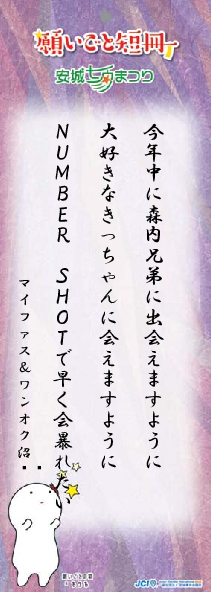 願いごと短冊
安城七夕まつり
今年中に森内兄弟に出会えますように
大好きなきっちゃんに会えますように
NUMBER SHOTで早く会暴れたい
マイファス&ワンオク沼
JCI